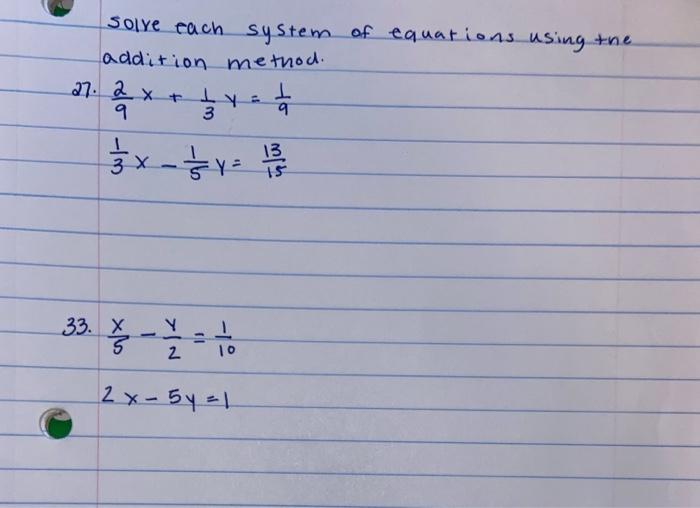 solve each system of equations using the
addition method.
27. 2/9 x + 1/3 y = 1/9
1/3 x - 1/5 y = 13/15
33. x/5 - y/2 = 1/10
2x - 5y = 1